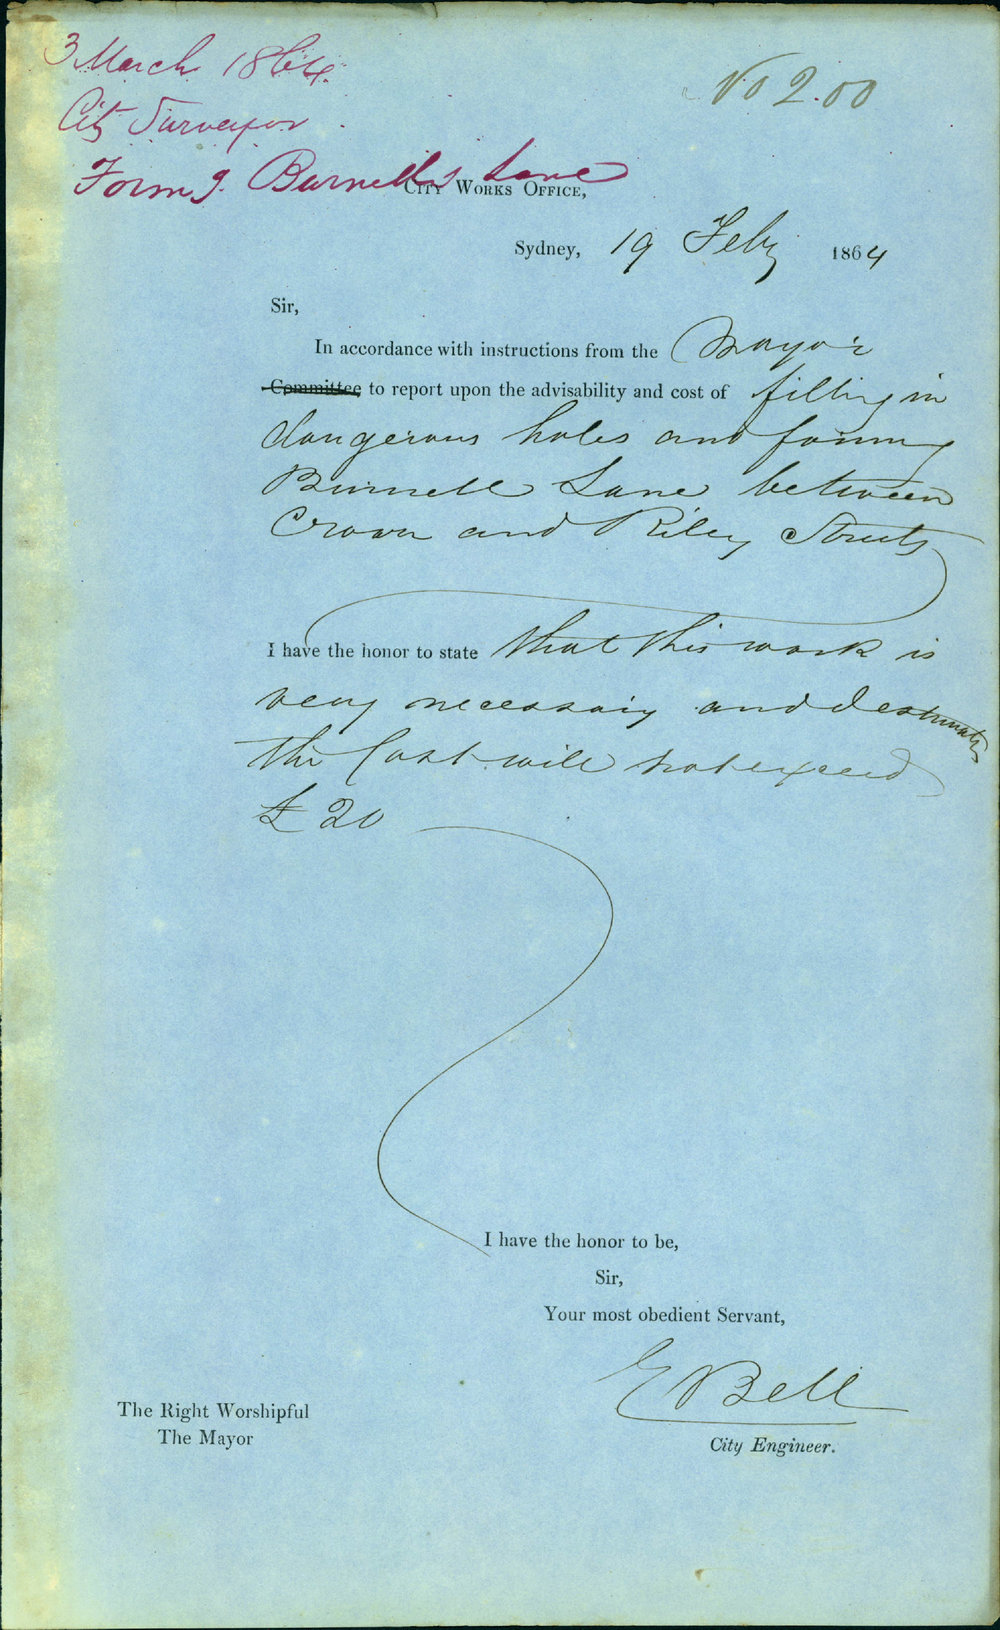 3 March 1864.
City Surveyor
Formg. Burnells Lane
No 200
CITY WORKS OFFICE,
Sydney, 19 Feby 1864
Sir,
In accordance with instructions from the Mayor
Committee to report upon the advisability and cost of filling in
dangerous holes and forming
Burnell Lane between
Crown and Riley Streets
I have the honor to state that this work is
very necessary and I estimate
the Cost will not exceed
£20
I have the honor to be,
Sir,
Your most obedient Servant,
E Bell
City Engineer.
The Right Worshipful
The Mayor